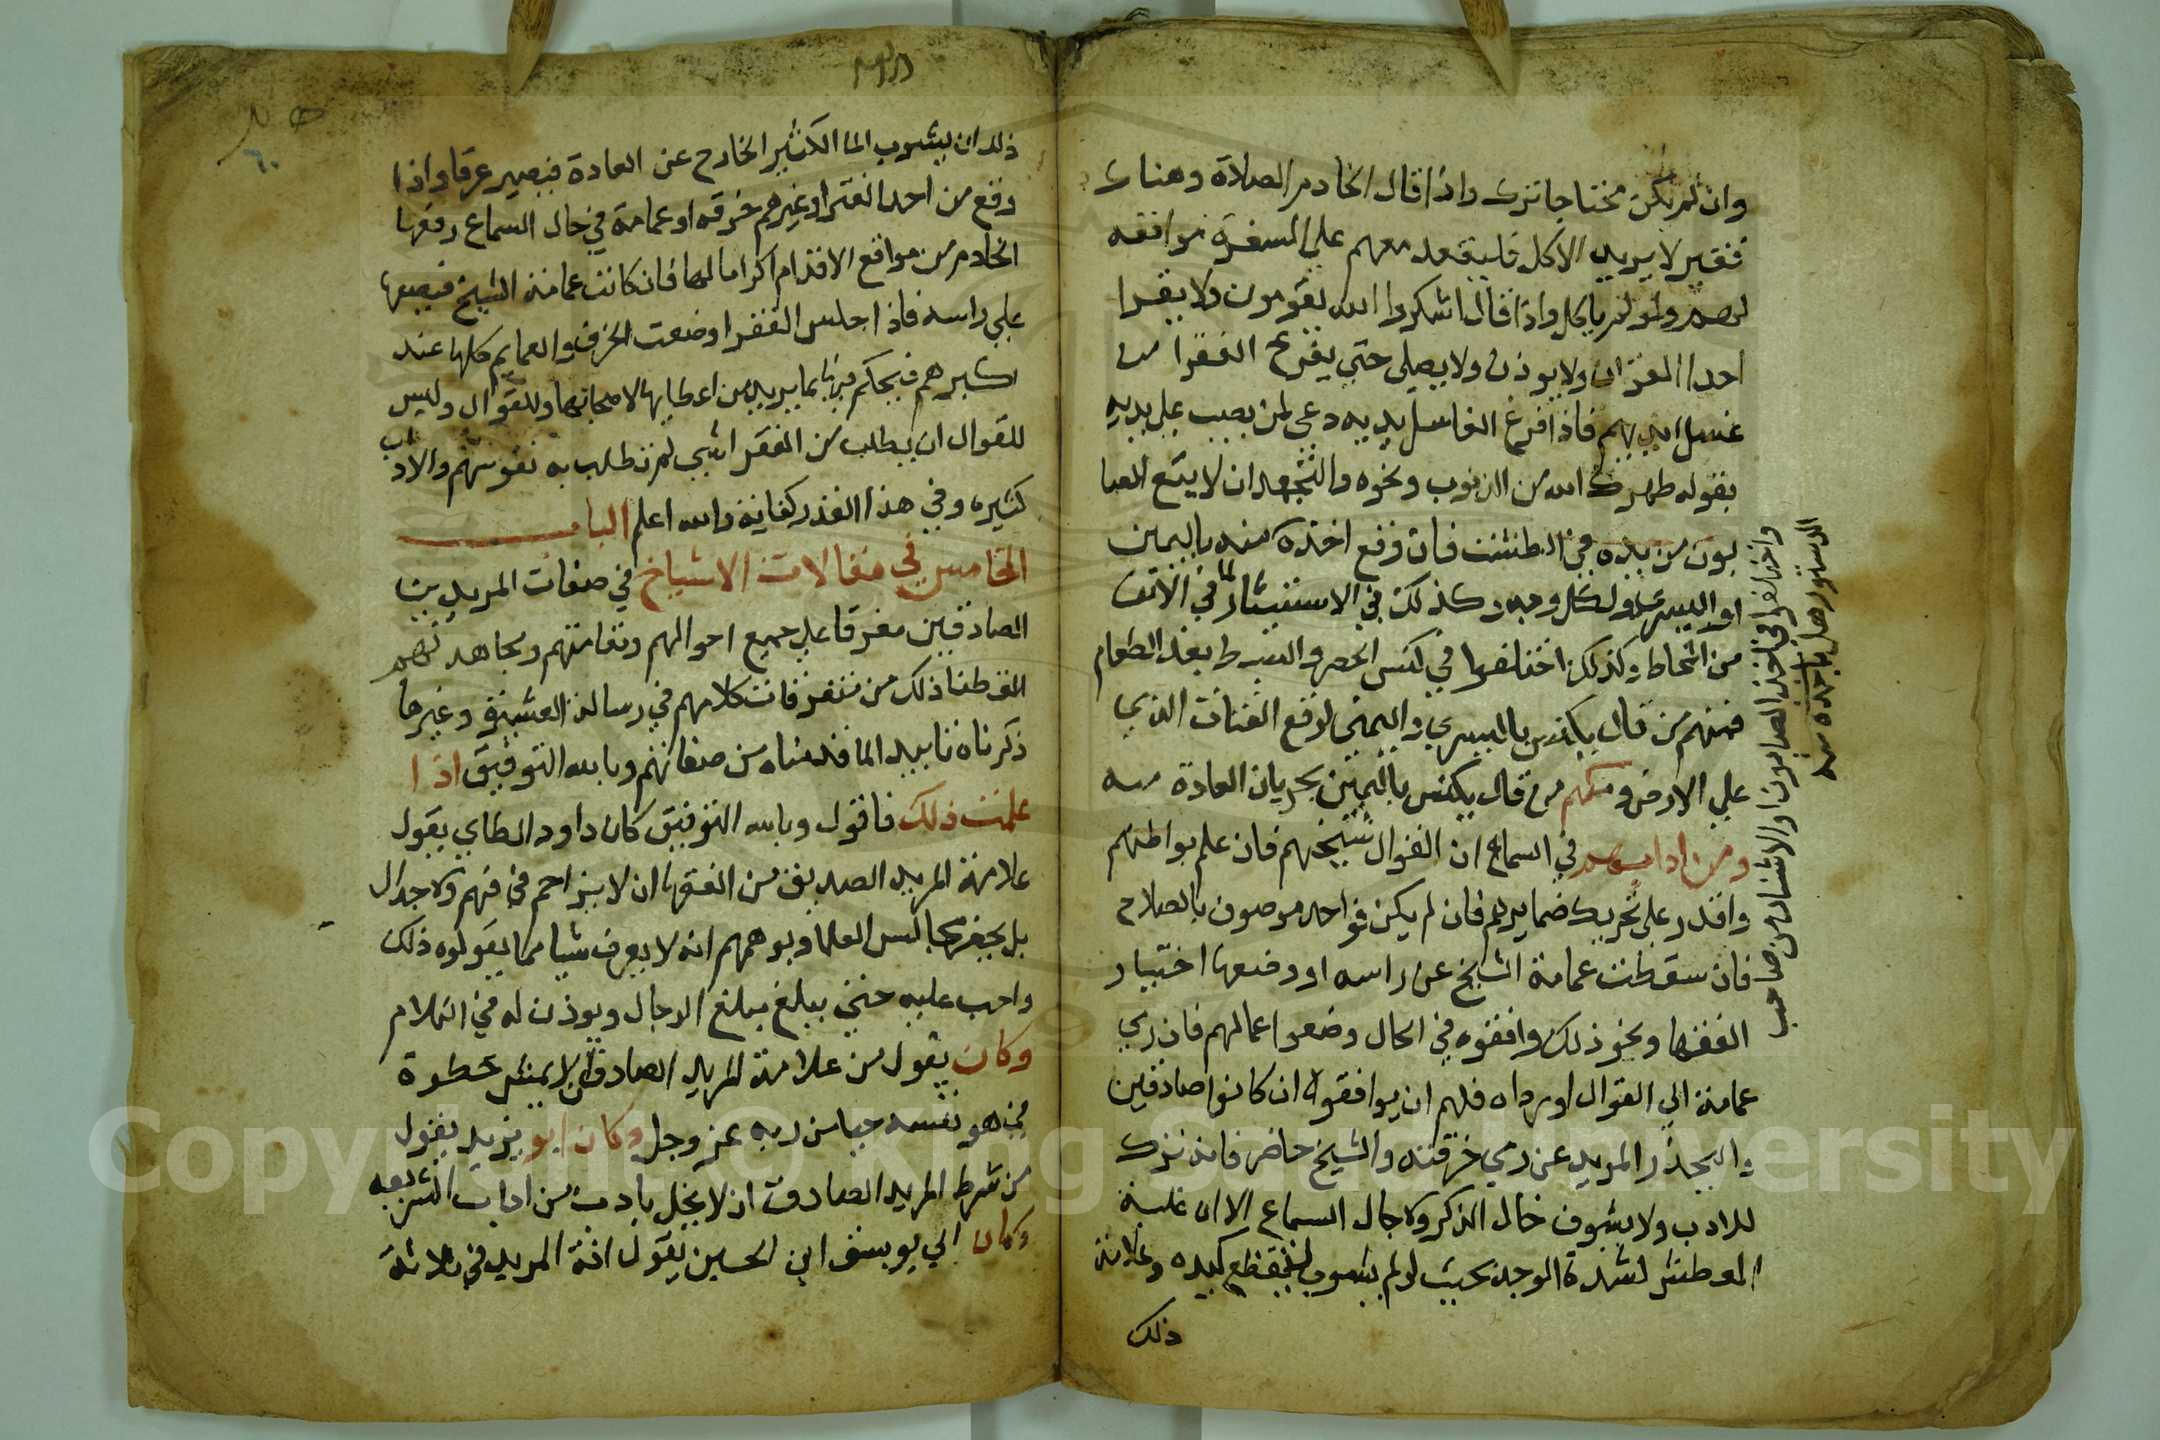 وان لم يكن محتاجا تركه واذا قال الخادم الصلاة وهناك
فقير لا يريد الاكل فليقعد معهم على السفرة موافقه
لهم ولو لم ياكل واذا قال اشكروا الله يقومون ولا يقرا
احدا القران ولا يوذن ولا يصلى حتي يفرغ الفقرا من
غسل ايديهم فاذا افرغ الغاسل يديه دعى لمن يصب على يديه
بقوله طهرك الله من الذنوب ونحوه وليجهد ان لا يقع الصا
بون من يده في الطشت فان وقع اخذه منه باليمين
او اليسرى ولكل وجه وكذلك في الاستنثار لما في الانف
من المخاط وكذلك اختلفوا في كنس الحصر والبسط بعد الطعام
فمنهم من قال يكنس باليسري واليمنى لرفع الفتات الذي
علي الارض ومنهم من قال يكنس باليمين بجريان العادة به
ومن ادابهم في السماع ان القوال شيخهم فان علم بواطنهم
واقدر على تحريك ضمايرهم فان لم يكن فواحد موصوف بالصلاح
فان سقطت عمامة الشيخ عن راسه او وضعها اختيار
الفقها ونحو ذلك وافقوه في الحال وضعوا عمايهم فان رمي
عمامة الي القوال او رداه فلهم ان يوافقوه ان كانوا صادقين
وليحذر المريد عن رمي خرقته والشيخ حاضر فانه ترك
للادب ولا يشرب حال الذكر ولا حال السماع الا ان غلبه
العطش لشدة الوجد بحيث لو لم يشرب لتقطع كبده وعلامة
ذلك
واختلفوا في اخذ الصابون او الاشنان من صاحب
الدستور هل ياخذه منه
ذلك ان يشرب الما الكثير الخارج عن العادة فيصير عرقا واذا
رفع من احد الفقرا وغيرهم خرقه او عمامة في حال السماع رفعها
الخادم من مواقع الاقدام اكراما لها فان كانت عمامة الشيخ فيضعها
علي راسه فاذا جلس الفقرا وضعت الخرق والعمايم كلها عند
اكبرهم فيحكم فيها بما يريد من اعطايها لاصحابها وللقوال وليس
للقوال ان يطلب من الفقرا شي لم تطلب به نفوسهم والاداب
كثيره وفي هذا القدر كفاية والله اعلم الباب
الخامس في مقالات الاشياخ في صفات المريدين
الصادقين مفرقا علي جميع احوالهم ومقامتهم ومجاهدتهم
التقطنا ذلك من متفرقات كلامهم في رسالة القشيري وغيرها
ذكرناه تاييد الما قدمناه من صفاتهم وبالله التوفيق اذا
علمت ذلك فاقول وبالله التوفيق كان داود الطاي يقول
علامة المريد الصديق من الفقها ان لا يزاحم في فهم ولا جدال
بل يحضر مجالس العلما ويوهمهم انه لا يعرف شيا مما يقولوه ذلك
واجب عليه حتى يبلغ مبلغ الرجال ويوذن له في الكلام
وكان يقول من علامة المريد الصادق ان لا يمشى خطوة
في هو نفسه حيا من ربه عز وجل وكان ابو يزيد يقول
من شرط المريد الصادق ان لا يخل بادب من اداب الشريعه
وكان ابي يوسف ابن الحسين يقول افة المريد في ثلاثة
٦٠